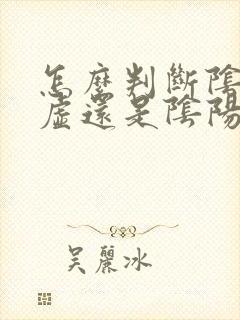 怎麼判斷陰
虛還是陰陽
吳麗冰